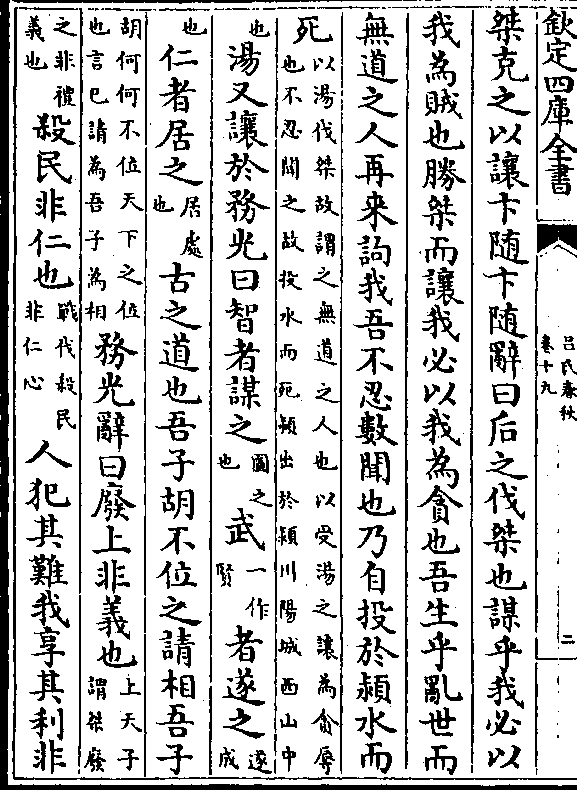 欽定四庫全書
呂氏春秋
卷十九
二
桀克之以讓卞随卞随辭曰后之伐桀也謀乎我必以
我為賊也勝桀而讓我必以我為貪也吾生乎亂世而
無道之人再来訽我吾不忍數聞也乃自投於潁水而
死以湯伐桀故謂之無道之人也以受湯之讓為貪辱也不忍聞之故投水而死潁出於潁川陽城西山中
也湯又讓於務光曰智者謀之圖之也武一作賢者遂之遂成
也仁者居之居處也古之道也吾子胡不位之請相吾子
胡何何不位天下之位也言已請為吾子為相務光辭曰廢上非義也上天子謂桀廢
之非禮義也殺民非仁也戰伐殺民非仁心人犯其難我享其利非